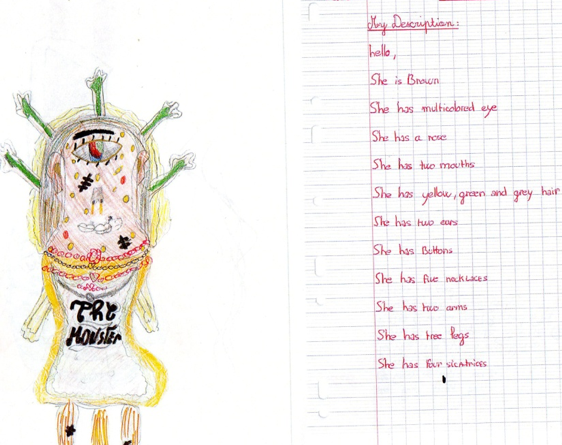 THE
MONSTER
My Description:
hello,
She is Brown
She has multicolored eye
She has a nose
She has two mouths
She has yellow, green and grey hair
She has two ears
She has Buttons
She has five necklaces
She has two arms
She has tree legs
She has four sicatrices